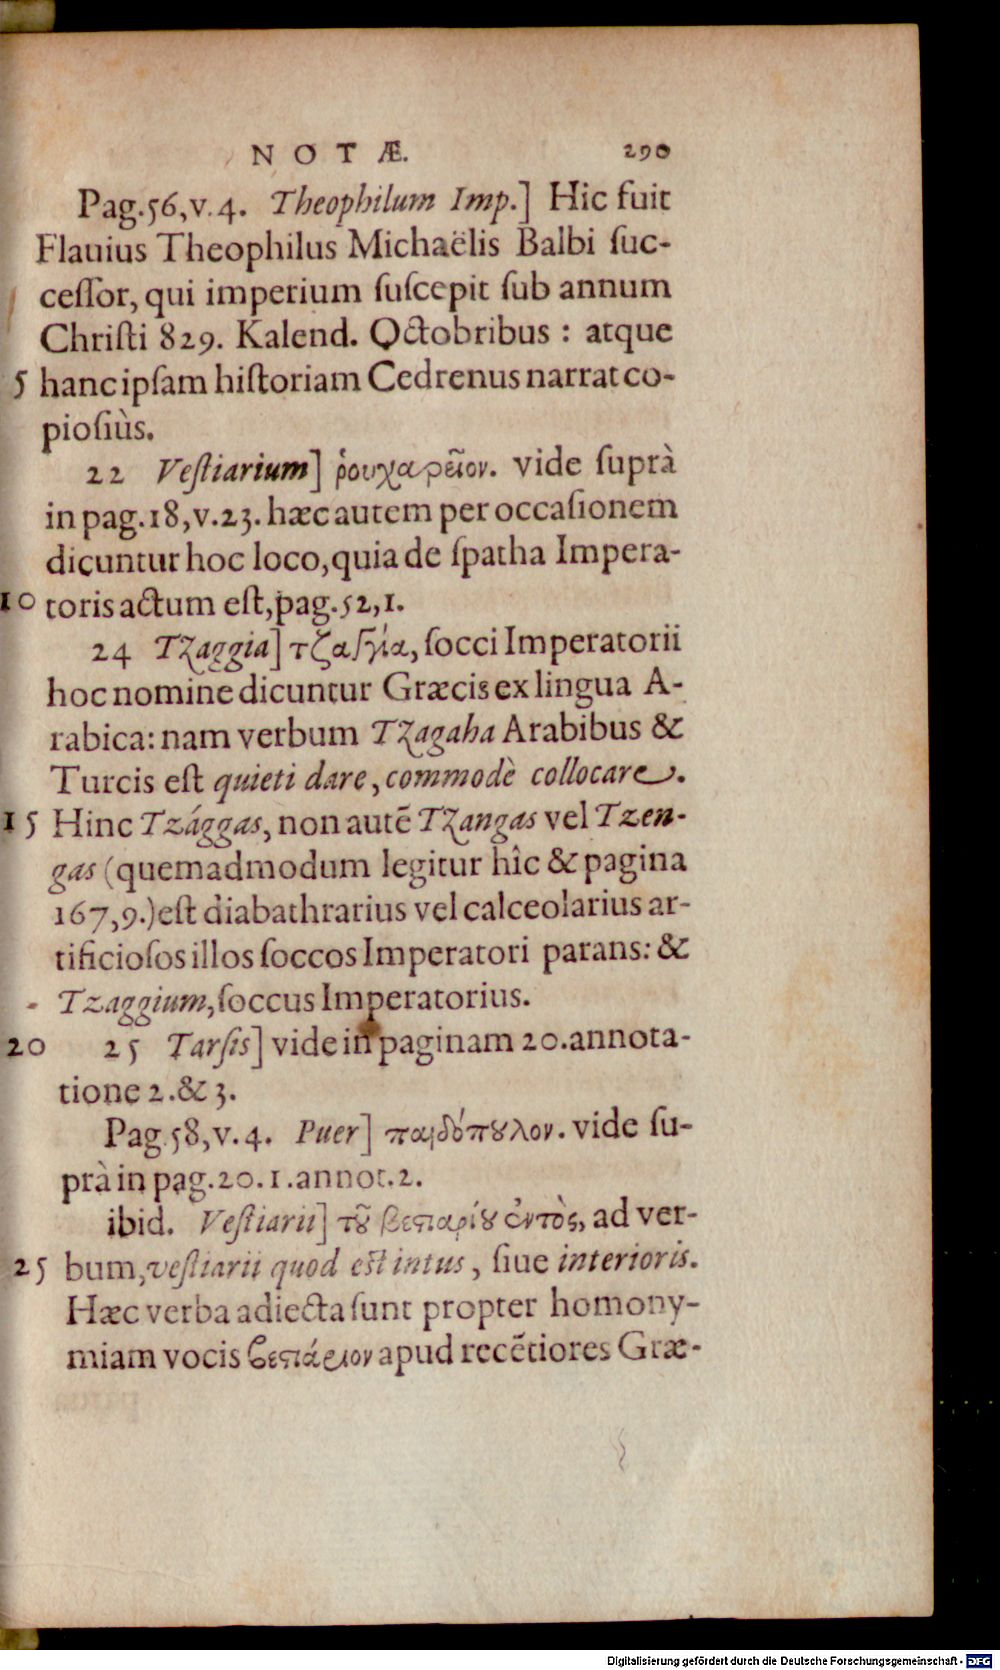 NOTÆ. 290
Pag.56,v.4. Theophilum Imp.] Hic fuit
Flauius Theophilus Michaëlis Balbi ſuc-
ceſſor, qui imperium ſuſcepit ſub annum
Chriſti 829. Kalend. Octobribus : atque
5 hanc ipſam hiſtoriam Cedrenus narrat co-
pioſiùs.
22 Veſtiarium] ῥουχαρεῖον. vide ſuprà
in pag.18,v.23. hæc autem per occaſionem
dicuntur hoc loco, quia de ſpatha Impera-
10 toris actum eſt, pag.52,1.
24 Tzaggia] τζαγγία, ſocci Imperatorii
hoc nomine dicuntur Græcis ex lingua A-
rabica: nam verbum Tzagaha Arabibus &
Turcis eſt quieti dare, commodè collocare.
15 Hinc Tzággas, non autē Tzangas vel Tzen-
gas (quemadmodum legitur hîc & pagina
167,9.) eſt diabathrarius vel calceolarius ar-
tificioſos illos ſoccos Imperatori parans: &
Tzaggium, ſoccus Imperatorius.
20 25 Tarſis] vide in paginam 20. annota-
tione 2. & 3.
Pag.58,v.4. Puer] παιδόπουλον. vide ſu-
prà in pag.20.1.annot.2.
ibid. Veſtiarii] τοῦ βεστιαρίου ἐντὸς, ad ver-
25 bum, veſtiarii quod est intus, ſiue interioris.
Hæc verba adiecta ſunt propter homony-
miam vocis βεστιάριον apud recētiores Græ-
Digitalisierung gefördert durch die Deutsche Forschungsgemeinschaft - DFG